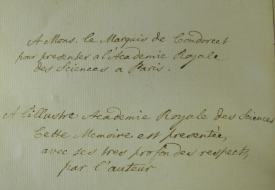 A Mons. le Marquis de Condorcet
pour presenter a l'Academie Royale
des Sciences a Paris.
A l'illustre Academie Royale des Sciences
Cette Memoire est presentée,
avec ses tres profond des respects,
par l'auteur